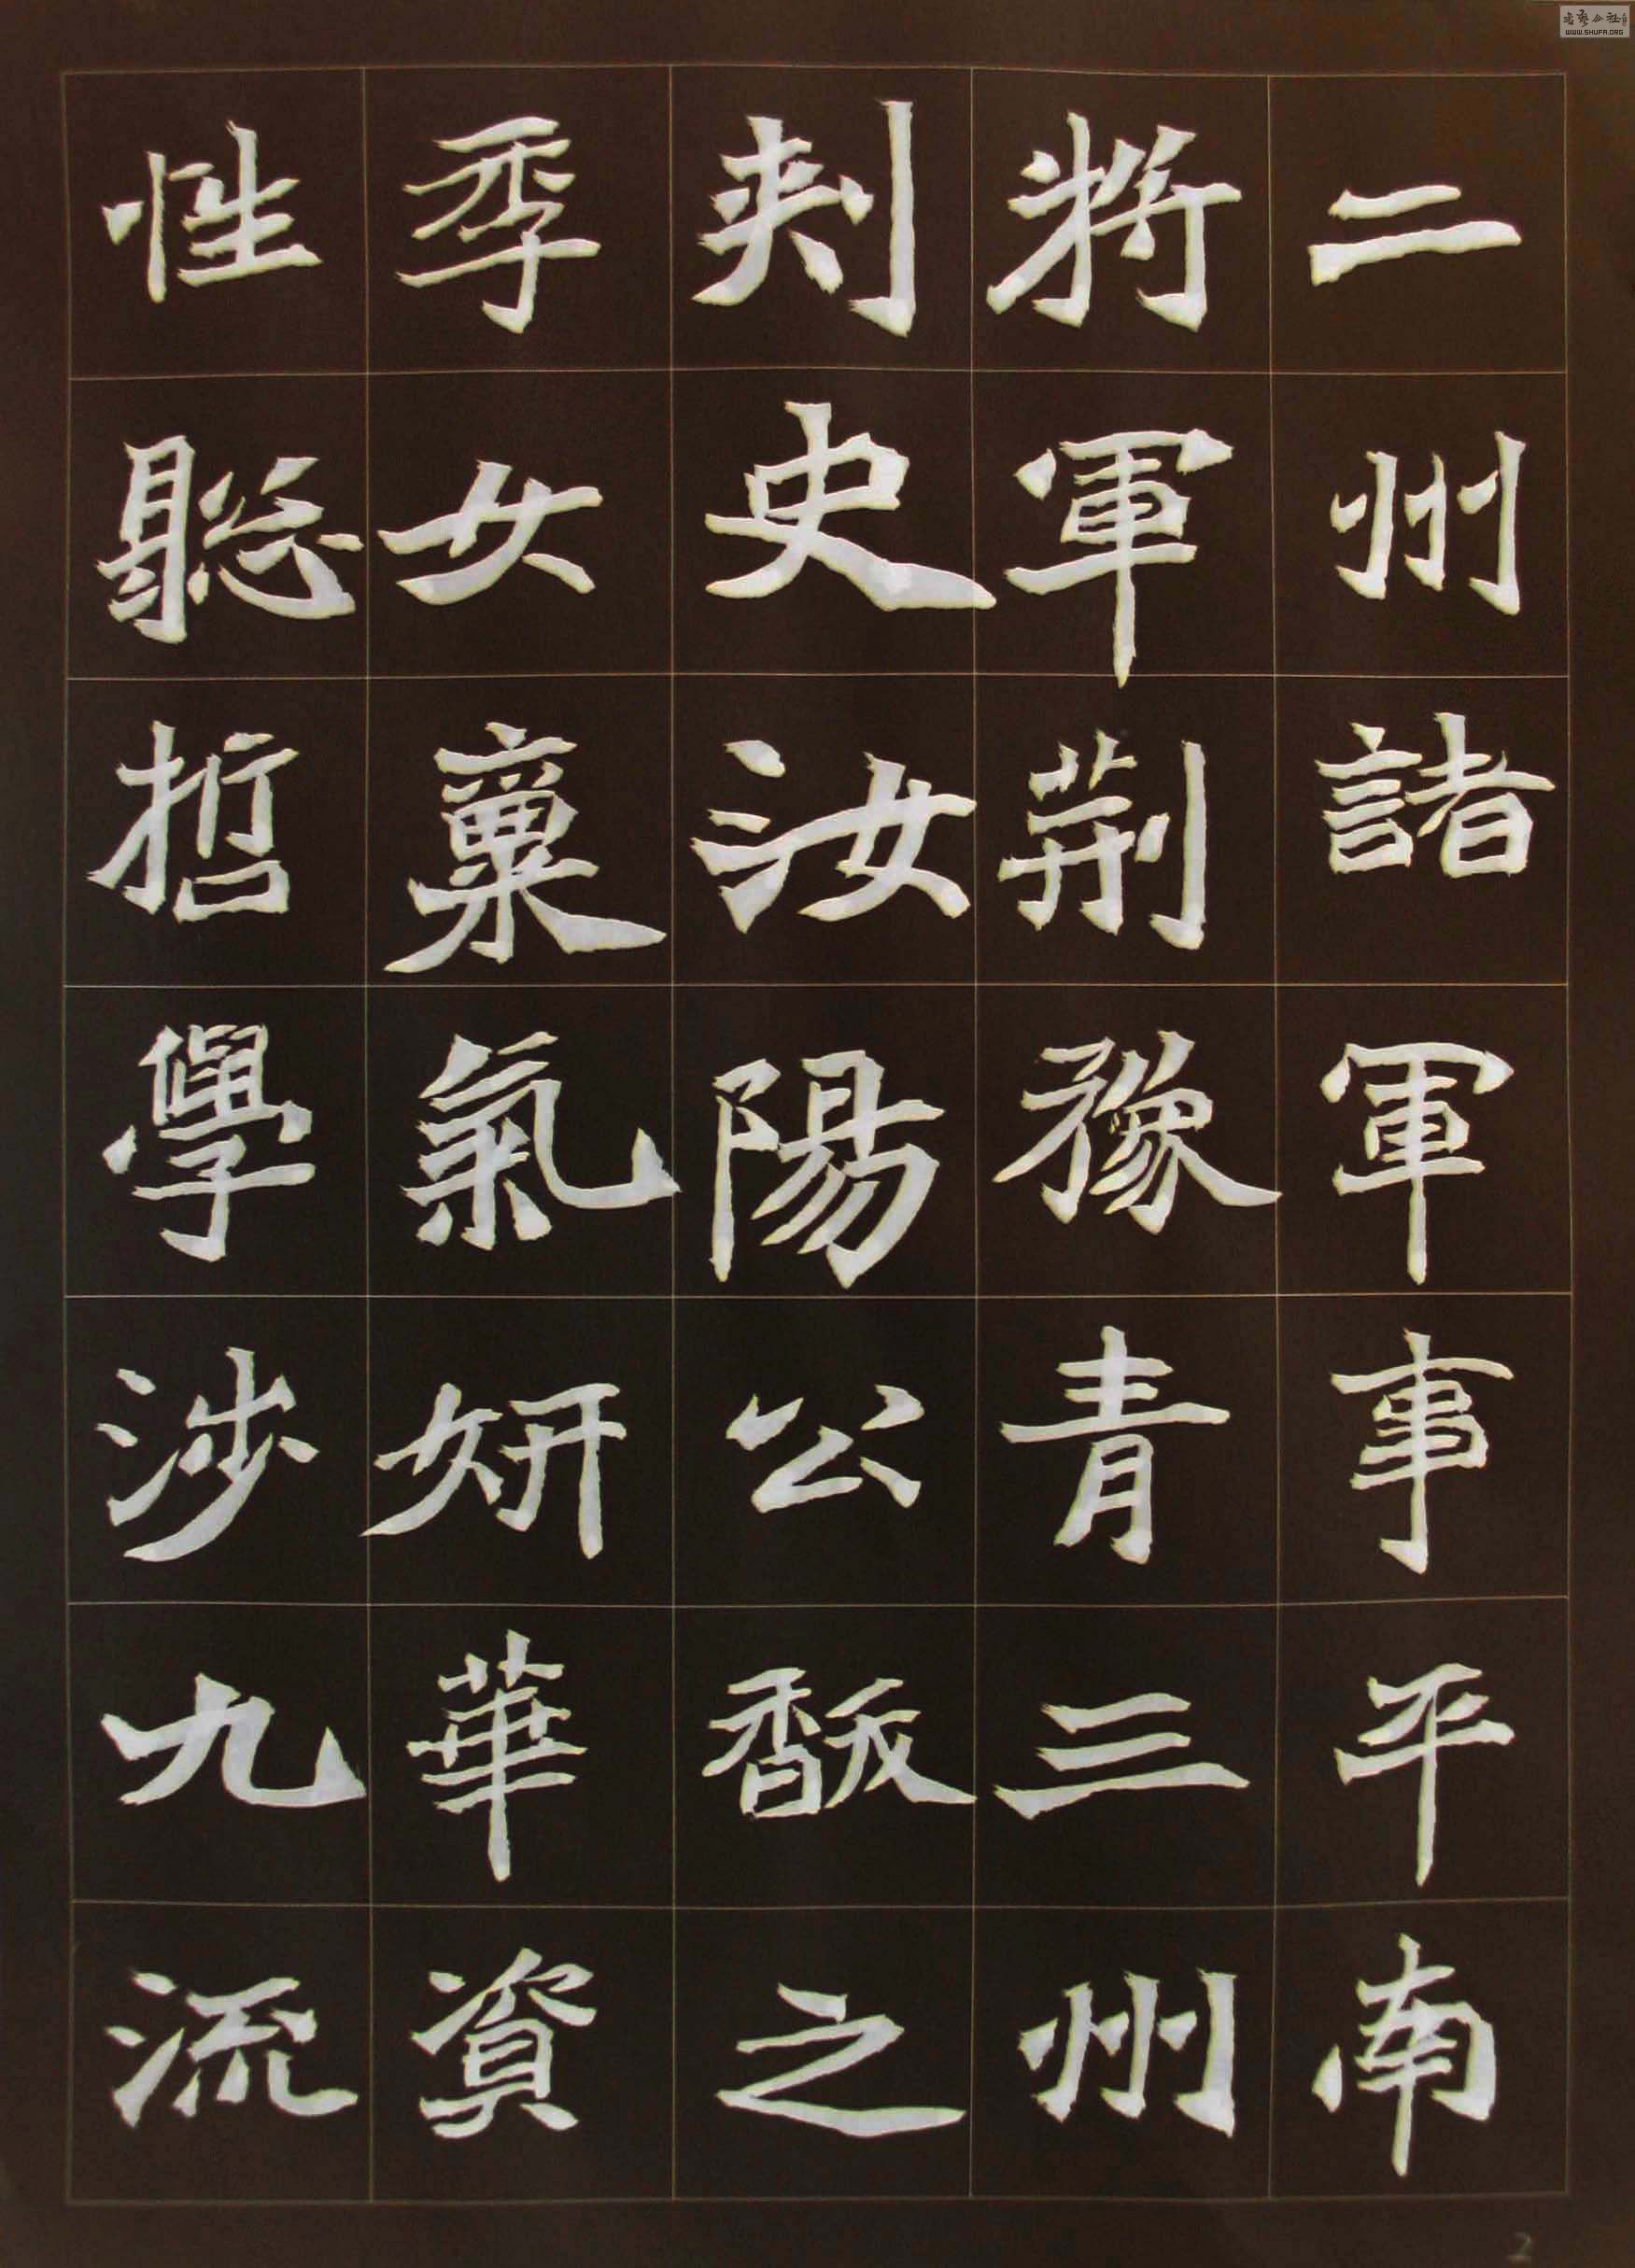 二州諸軍事平南
將軍荊豫青三州
刺史汝陽公馛之
季女稟氣妍華資
性聡哲學涉九流
WWW.SHUFA.ORG
2